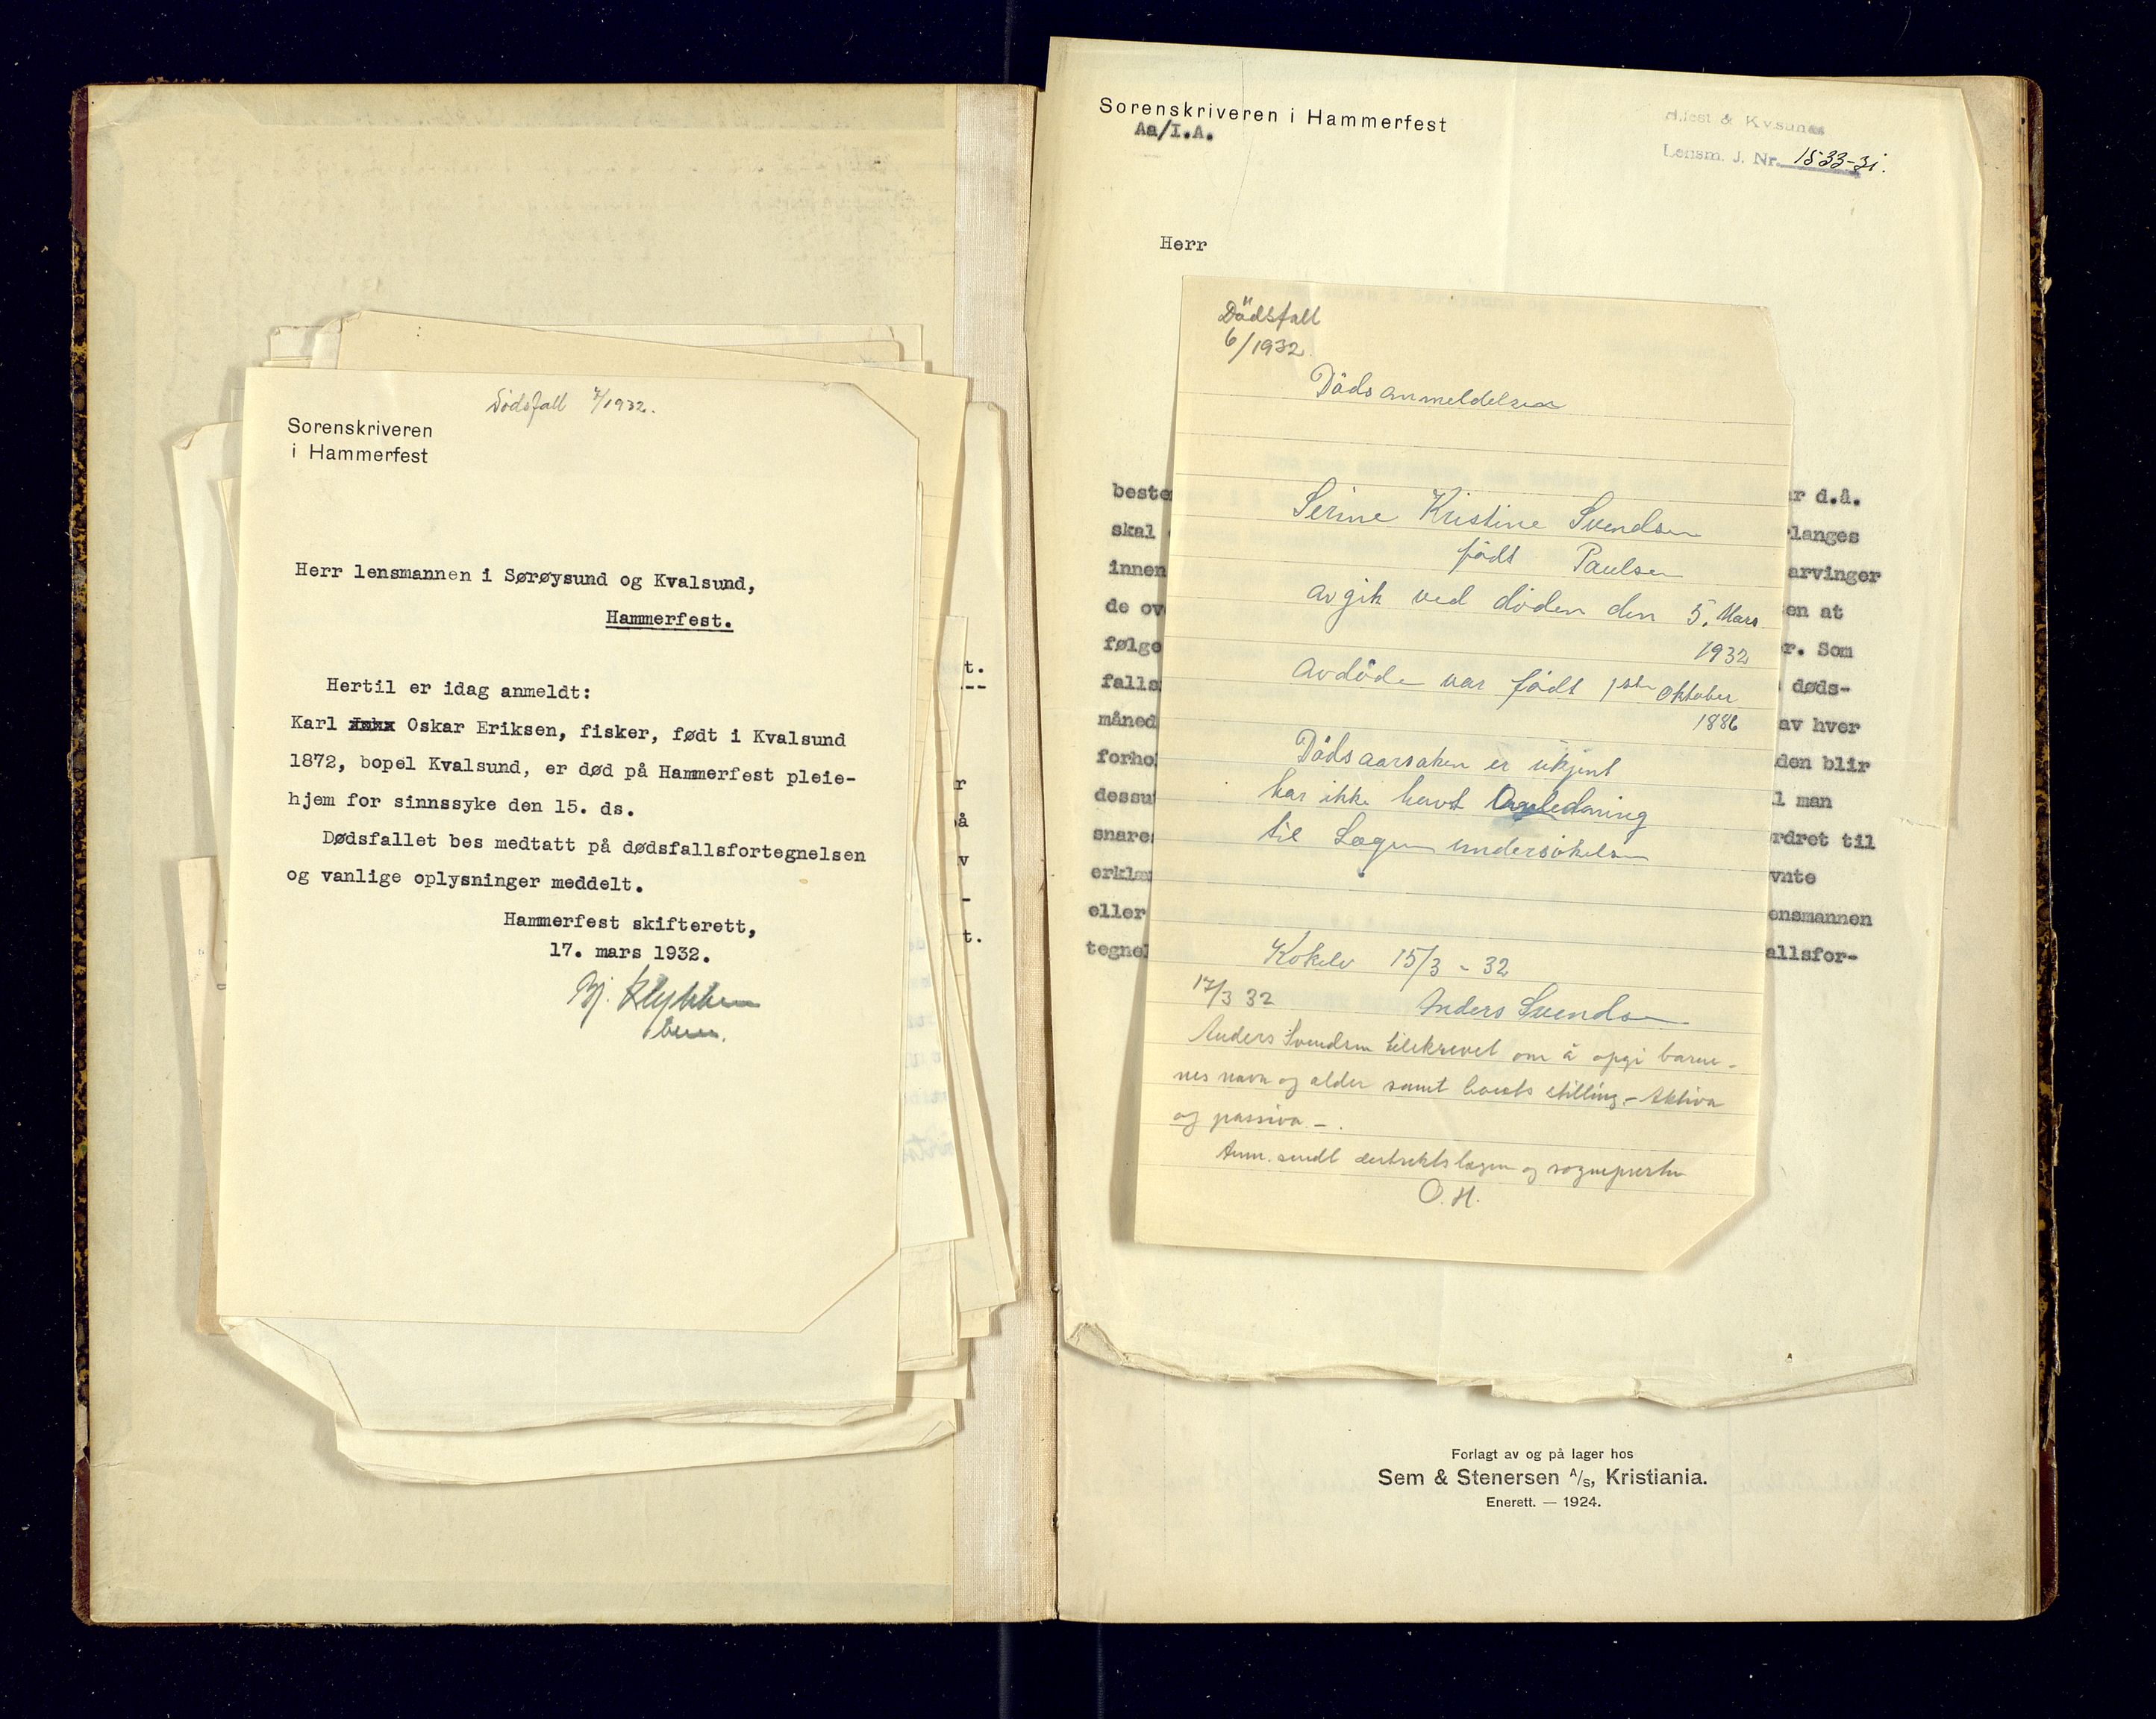 Dødsfall 7/1932.
Sorenskriveren
i Hammerfest
Herr lensmannen i Sørøysund og Kvalsund,
Hammerfest.
Hertil er idag anmeldt:
Karl Oskar Eriksen, fisker, født i Kvalsund
1872, bopel Kvalsund, er død på Hammerfest pleie-
hjem for sinnssyke den 15. ds.
Dødsfallet bes medtatt på dødsfallsfortegnelsen
og vanlige oplysninger meddelt.
Hammerfest skifterett,
17. mars 1932.
t.
--
r
å
v
-
t.
Sorenskriveren i Hammerfest
Aa/I.A.
H.fest & Kv.sunds
Lensm. J. Nr. 1533-31.
Herr
beste
skal
innen
de ov
følge
falls
måned
forho
dessu
snare
erklæ
eller
tegnel
r d.å.
langes
arvinger
en at
r. Som
døds-
av hver
den blir
l man
rdret til
vnte
ensmannen
allsfor-
Dödsfall
6/1932.
Dödsanmeldelse
Serine Kristine Svendsen
född Paulsen
avgik ved döden den 5. Mars
1932
Avdöde var födt 1ste Oktober
1886
Dödsaarsaken er ukjent
har ikke havt Anledning
til Lægeundersökelse
Kokelv 15/3 - 32
Anders Svendsen
17/3 32
Anders Svendsen tilskrevet om å opgi barne-
nes navn og alder samt boets stilling - Aktiva
og passiva. -.
Anm. sendt distriktslægen og sognepresten
O.H.
Forlagt av og på lager hos
Sem & Stenersen A/S, Kristiania.
Enerett. — 1924.